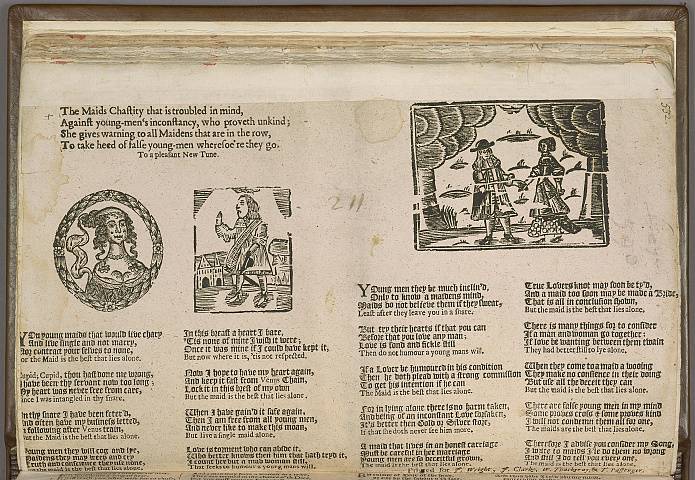 The Maids Chastity that is troubled in mind,
Against young-men's inconstancy, who proveth unkind;
She gives warning to all Maidens that are in the row,
To take heed of false young-men wheresoe're they go.
To a pleasant New Tune.
211
YOu young maids that would live chary
And live single and not marry,
contract your selves to none,
or the Maid is the best that lies alone.
Cupid, Cupid, thou hast done me wrong,
I have been thy servant now too long;
My heart was never free from care,
since I was intangled in thy snare.
In thy snare I have been fetter'd,
And often have my business letted,
following after Venus train,
but the Maid is the best that lies alone.
Young men they will cog and lye,
Maidens they may weep and cry
Truth and conscience they use none,
or the maid is the best that lies alone.
In this breast a heart I bare,
'Tis none of mine I wish it were;
Once it was mine if I could have kept it,
But now where it is, 'tis not respected.
Now I hope to have my heart again,
And keep it fast from Venus Chain,
Lock it in this brest of my own
But the maid is the best that lies alone.
When I have gain'd it safe again,
Then I am free from all young men,
And never like to make this moan,
But live a single maid alone.
Love is torment who can abide it,
Who better knows then him that hath tryd it,
I count her but a mad woman still,
That seeks to humour a young mans will.
YOung men they be much inclin'd,
Only to know a maidens mind,
Maids do not believe them if they swear,
Least after they leave you in a snare.
But try their hearts if that you can
Before that you love any man;
Love is fond and fickle still
Then do not humour a young mans will.
If a Lover be humoured in his condition
Then he doth plead with a strong commission
To get his intention if he can
The Maid is the best that lies alone.
For in lying alone there is no harm taken,
And being of an inconstant Love forsaken,
It's better then Gold or Silver store,
If that she doth never see him more.
A maid that lives in an honest carriage
Must be careful in her marriage
Young men are so deceitful grown,
The maid is the best that lies alone.
True Lovers knot may soon be ty'd,
And a maid too soon may be made a Bride,
That is all in conclusion shown,
But the maid is the best that lies alone.
There is many things for to consider
If a man and woman go together:
If love be wanting between them twain
They had better still to lye alone.
When they come to a maid a wooing
They make no conscience in their doing
But use all the deceit they can
But the Maid is the best that lies alone.
There are false young men in my mind
Some proves cross & some proves kind
I will not condemn them all for one,
The maids are the best that lies alone.
Therefore I advise you consider my Song,
I write to maids I'le do them no wrong
And still I do tell you every one,
The maid is the best that lies alone.
Printed for J. Wright, J. Clarke, W. Thackeray, & T. Passinger.